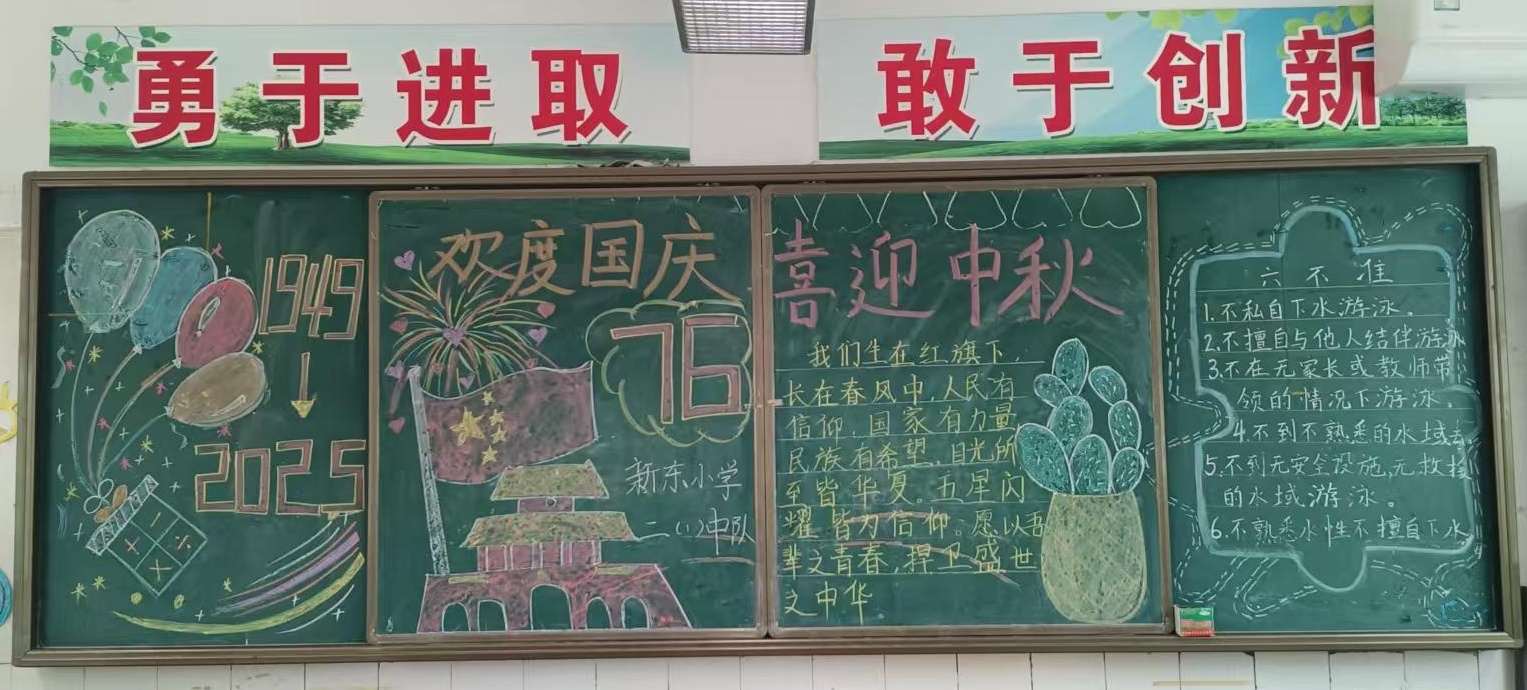 勇于进取
敢于创新
1949
2025
欢度国庆
76
新东小学
二(1)中队
喜迎中秋
我们生在红旗下,
长在春风中,人民有
信仰,国家有力量
民族有希望,目光所
至皆华夏。五星闪
耀皆为信仰。愿以吾
辈之青春,捍卫盛世
之中华
六不准
1.不私自下水游泳。
2.不擅自与他人结伴游泳
3.不在无家长或教师带
领的情况下游泳。
4.不到不熟悉的水域去
5.不到无安全设施,无救援
的水域游泳。
6.不熟悉水性不擅自下水